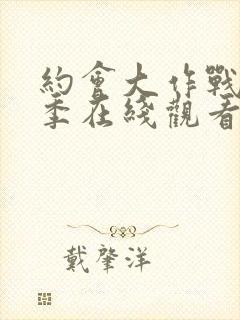 約會大作戰
季在綫觀看
戴肇洋